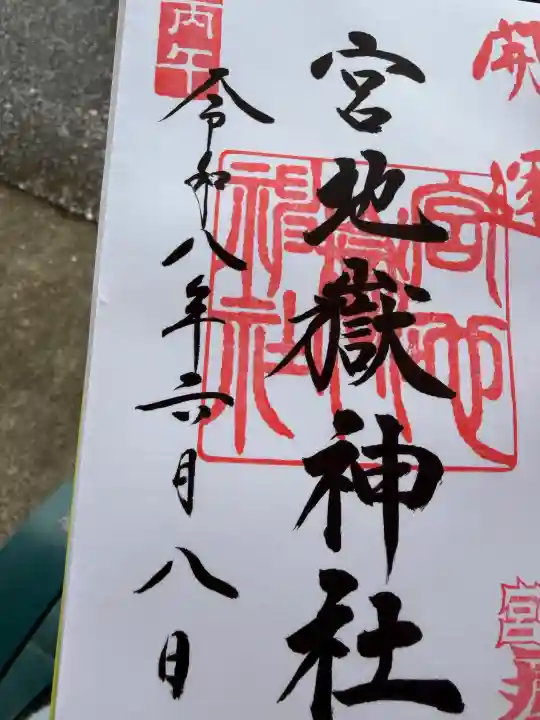 開運
宮地嶽神社
宮地嶽神社
丙午
令和八年六月八日